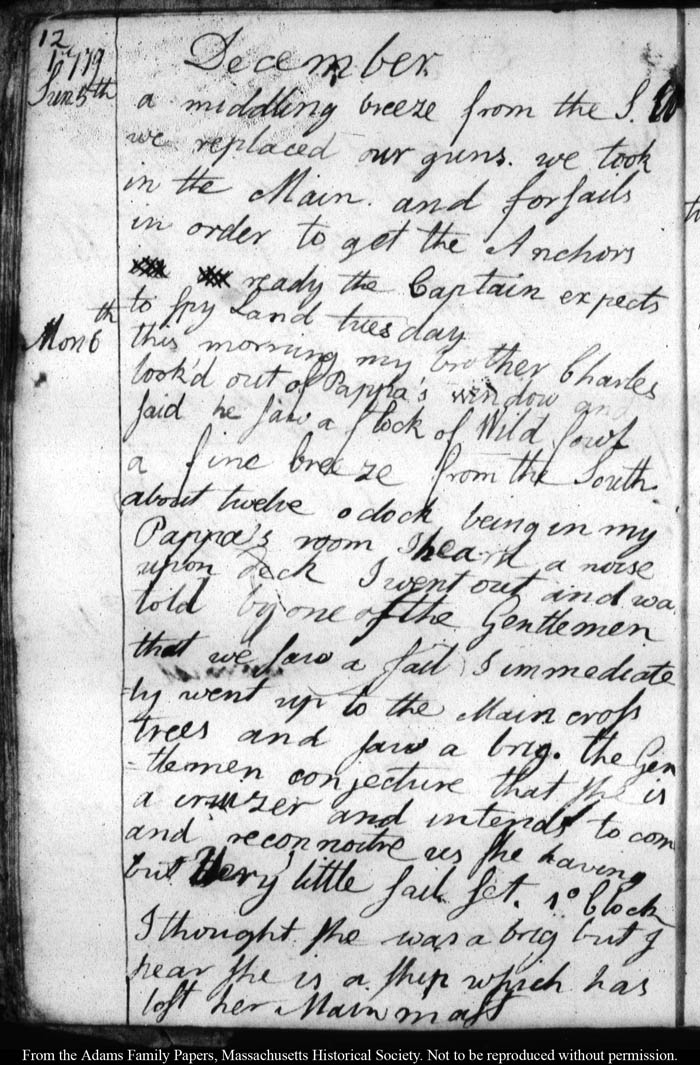 12
1779
December
Sun 5th
a middling breeze from the S. W
we replaced our guns. we took
in the Main. and forsails
in order to get the Anchors
ready the Captain expects
to spy Land tuesday
Mon 6th
this morning my brother Charles
look'd out of Pappa's window and
said he saw a flock of Wild fowl
a fine breeze from the South.
about twelve oclock being in my
Pappa's room I heard a noise
upon deck I went out and wa
told by one of the Gentlemen
that we saw a sail I immediate
ly went up to the Main cross
trees and saw a brig. the Gen
-tlemen conjecture that she is
a cruizer and intends to com
and reconnoitre us she having
but Very little sail set. 1 o Clock
I thought she was a brig but I
hear she is a ship which has
lost her Main mast
From the Adams Family Papers, Massachusetts Historical Society. Not to be reproduced without permission.